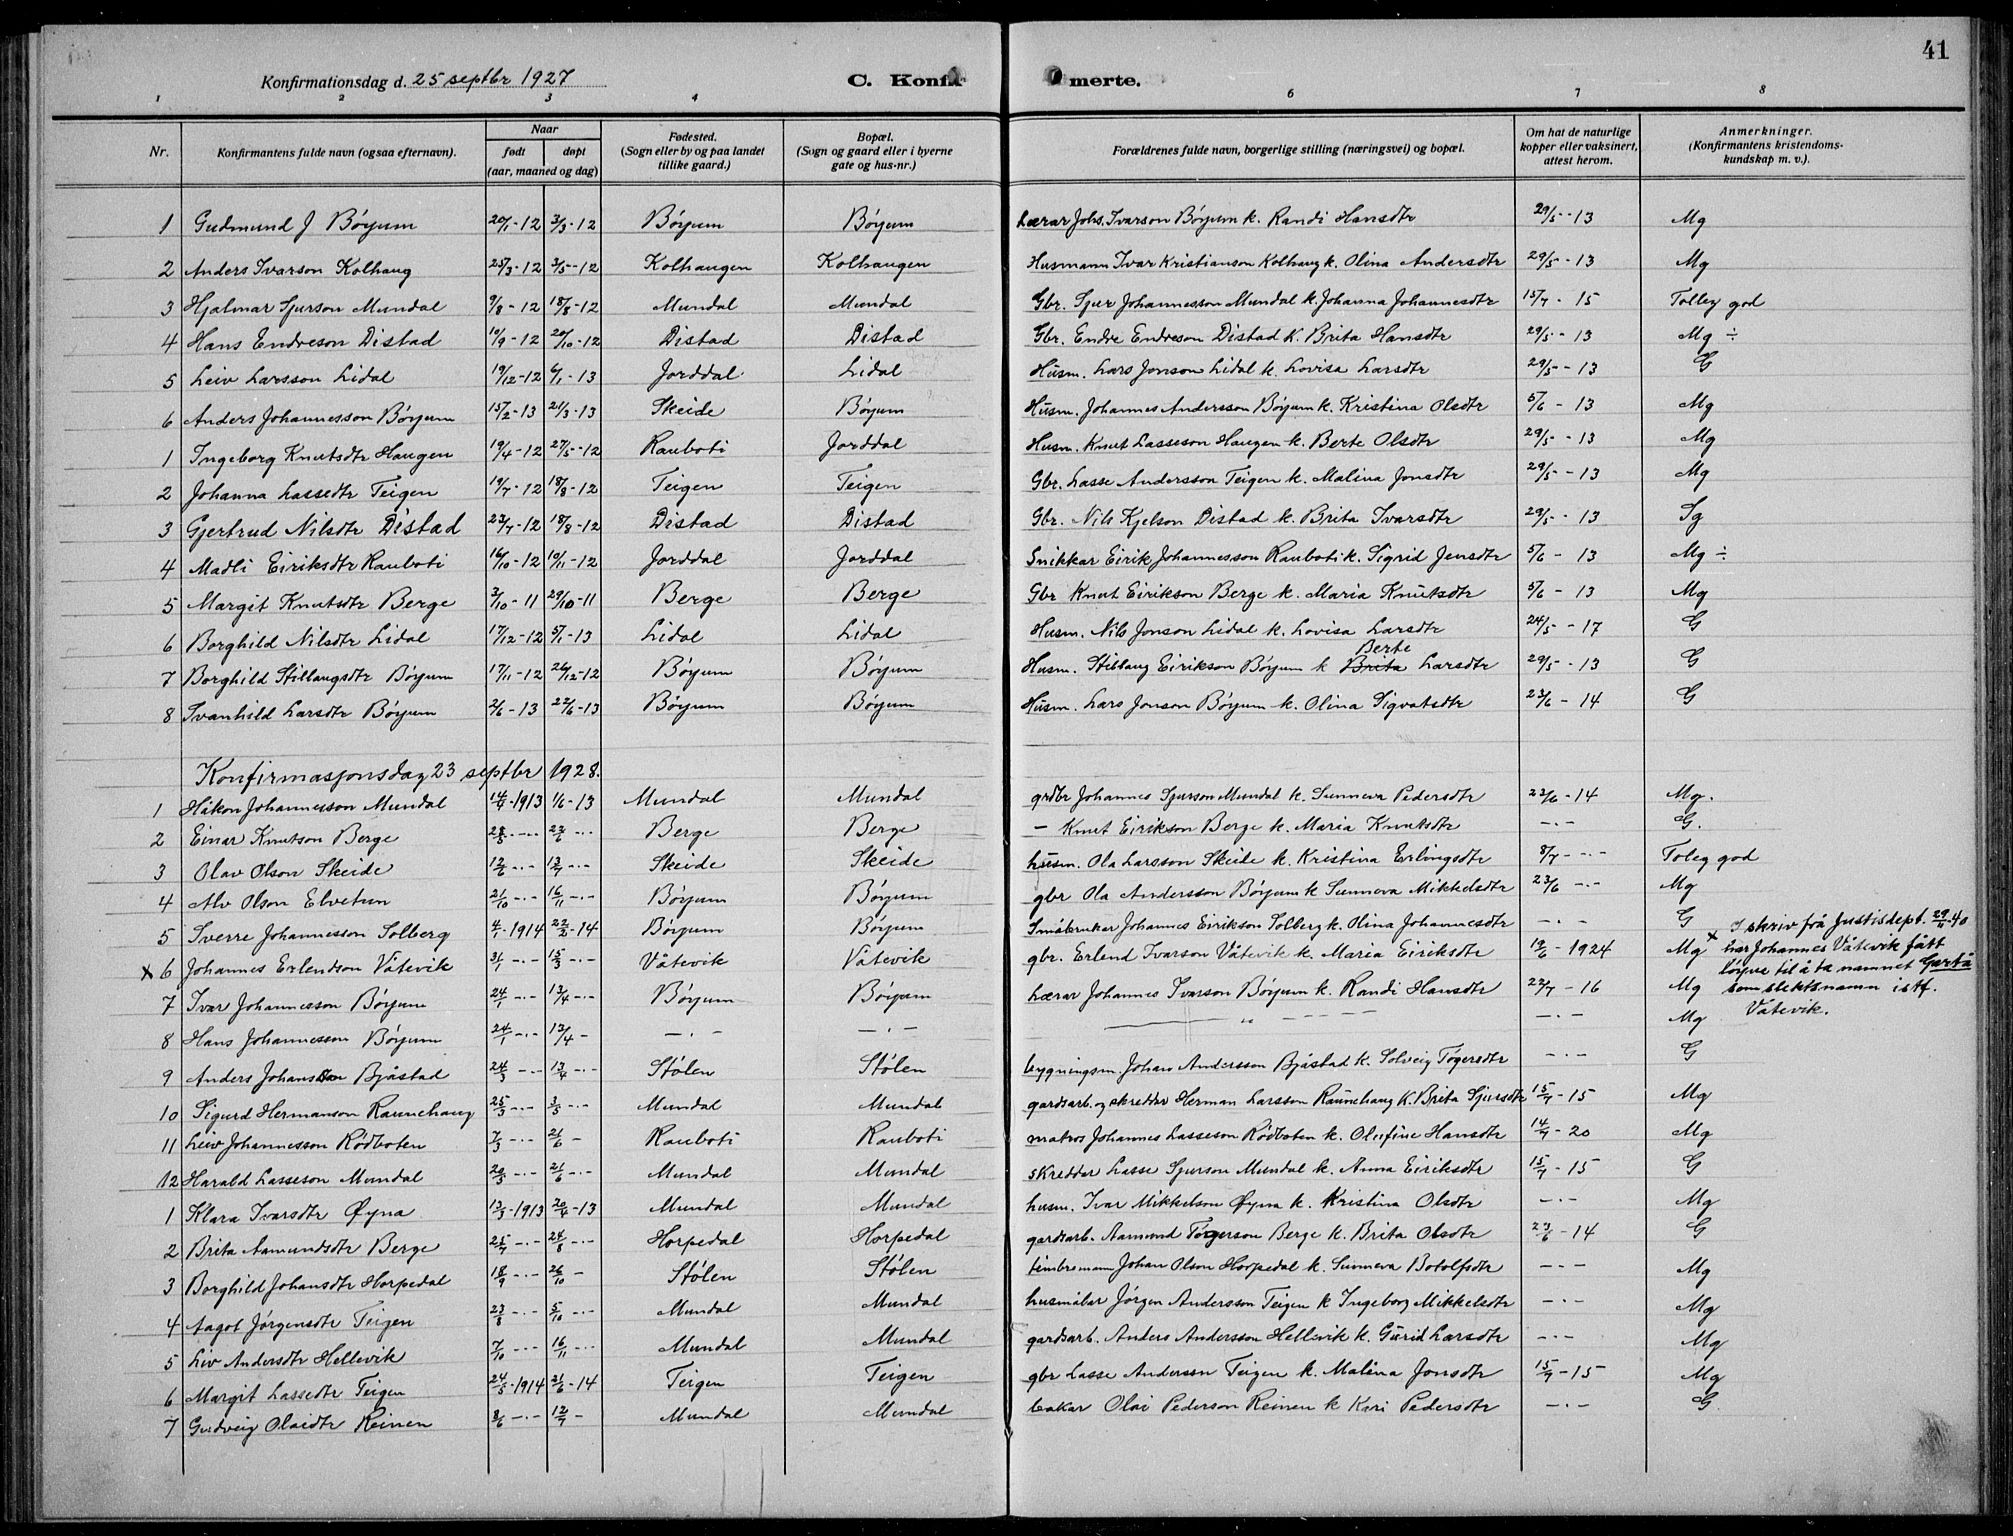 41
Konfirmationsdag d. 25 septbr 1927 C. Konfirmerte.
1 2 3 4 6 7 8
Nr. Konfirmantens fulde navn (ogsaa efternavn). Naar født døpt (aar, maaned og dag) Fødested. (Sogn eller by og paa landet tillike gaard.) Bopæl. (Sogn og gaard eller i byerne gate og hus-nr.) Forældrenes fulde navn, borgerlige stilling (næringsvei) og bopæl. Om hat de naturlige kopper eller vaksinert, attest herom. Anmerkninger. (Konfirmantens kristendomskundskap m. v.)
1 Gudmund J Bøyum 20/1-12 3/3-12 Bøyum Bøyum Lærar Johs. Ivarson Bøyum k. Randi Hansdtr 29/5-13 Mg
2 Anders Ivarson Kolhaug 25/3-12 3/5-12 Kolhaugen Kolhaugen Husmann Ivar Kristianson Kolhaug k. Olina Andersdtr 29/5-13 Mg
3 Hjalmar Sjurson Mundal 9/8-12 18/8-12 Mundal Mundal Gbr. Sjur Johannesson Mundal k. Johanna Johannesdtr 15/7-15 Tolleg god
4 Hans Endreson Distad 10/9-12 20/10-12 Distad Distad Gbr. Endre Endreson Distad k. Brita Hansdtr 29/5-13 Mg ÷
5 Leiv Larsson Lidal 19/12-12 6/1-13 Jorddal Lidal Husm. Lars Jonson Lidal k. Lovisa Larsdtr 29/5-13 G
6 Anders Johannesson Bøyum 15/2-13 21/3-13 Skeide Bøyum Husm. Johannes Andersson Bøyum k. Kristina Olsdtr 5/6-13 Mg
1 Ingeborg Knutsdtr Haugen 19/4-12 27/5-12 Rauboti Jorddal Husm. Knut Lasseson Haugen k. Berte Olsdtr 29/5-13 Mg
2 Johanna Lassedtr Teigen 19/7-12 18/8-12 Teigen Teigen Gbr. Lasse Andersson Teigen k. Malina Jonsdtr 29/5-13 Mg
3 Gjertrud Nilsdtr Distad 23/7-12 18/8-12 Distad Distad Gbr. Nils Kjelson Distad k. Brita Ivarsdtr 29/5-13 Sg
4 Madli Eiriksdtr Rauboti 16/10-12 10/11-12 Jorddal Jorddal Snikkar Eirik Johannesson Rauboti k. Sigrid Jensdtr 5/6-13 Mg ÷
5 Margit Knutsdtr Berge 3/10-11 29/10-11 Berge Berge Gbr Knut Eirikson Berge k. Maria Knutsdtr 5/6-13 Mg
6 Borghild Nilsdtr Lidal 17/12-12 5/1-13 Lidal Lidal Husm. Nils Jonson Lidal k. Lovisa Larsdtr 24/5-17 G
7 Borghild Stillaugsdtr Bøyum 17/11-12 26/12-12 Bøyum Bøyum Husm. Stillaug Eirikson Bøyum k Brita Berte Larsdtr 29/5-13 G
8 Svanhild Larsdtr Bøyum 2/6-13 22/6-13 Bøyum Bøyum Husm. Lars Jonson Bøyum k. Olina Sigvatsdtr 23/6-14 G
Konfirmasjonsdag 23 septbr 1928.
1 Håkon Johannesson Mundal 1913 1/6-13 Mundal Mundal grdbr Johannes Sjurson Mundal k. Sunneva Pedersdtr 23/6-14 Mg.
2 Einar Knutson Berge -·- -·- Berge Berge - Knut Eirikson Berge k. Maria Knutsdtr -·- G.
3 Olav Olson Skeide 12/6 -·- 13/7 -·- Skeide Skeide husm. Ola Larsson Skeide k. Kristina Erlingsdtr 8/7 -·- Toleg god
4 Alv Olson Elvetun 21/10 -·- 16/11 -·- Bøyum Bøyum gbr Ola Andersson Bøyum k Sunneva Mikkelsdtr 23/6 -·- Mg
5 Sverre Johannesson Solberg 4/1-1914 22/3-14 Bøyum Bøyum Småbrukar Johannes Eirikson Solberg k. Olina Johannesdtr -·- G
x 6 Johannes Erlendson Våtevik 3/1 -·- 15/3 -·- Våtevik Våtevik gbr. Erlend Ivarson Våtevik k. Maria Eiriksdtr 19/6-1924 Mg x I skriv frå Justisdept. 29/11-40 har Johannes Våtevik fått løyve til å ta namnet Gartå som slektsnamn istf. Våtevik.
7 Ivar Johannesson Bøyum 24/1 -·- 13/4 -·- Bøyum Bøyum Lærar Johannes Ivarson Bøyum k. Randi Hansdtr 22/7-16 Mg
8 Hans Johannesson Bøyum 24/1 -·- 13/4 - -·- -·- - " - -·- Mg
9 Anders Johansson Bjåstad 24/3 -·- 13/4 -·- Stølen Stølen bygningsm. Johan Andersson Bjåstad k. Solveig Tøgersdtr -·- G
10 Sigurd Hermanson Raunehaug 25/3 -·- 3/5 -·- Mundal Mundal gardsarb. og skredder Herman Larsson Raunehaug k. Brita Sjursdtr 15/7-15 Mg
11 Leiv Johannesson Rødboten 7/3 -·- 21/6 - Rauboti Rauboti matros Johannes Lasseson Rødboten k. Olufine Hansdtr 14/7-20 Mg
12 Harald Lasseson Mundal 20/5 -·- 21/6 -·- Mundal Mundal skreddar Lasse Sjurson Mundal k. Anna Eiriksdtr 15/7-15 G
1 Klara Ivarsdtr Øyna 13/3-1913 20/4-13 Mundal Mundal husm. Ivar Mikkelson Øyna k. Kristina Olsdtr -·- Mg
2 Brita Aamundsdtr Berge 25/7 -·- 24/8 -·- Horpedal Horpedal gardsarb. Aamund Tøgerson Berge k. Brita Olsdtr 23/6-14 G
3 Borghild Johansdtr Horpedal 18/9 -·- 26/10 - Stølen Stølen timbremann Johan Olson Horpedal k. Sunneva Botolfsdtr -·- Mg
4 Aagot Jørgensdtr Teigen 23/8 -·- 5/10 -·- Mundal Mundal husmålar Jørgen Andersson Teigen k Ingeborg Mikkelsdtr -·- Mg
5 Liv Andersdtr Hellevik 7/10 -·- 16/11 -·- Mundal Mundal gardsarb. Anders Andersson Hellevik k. Gurid Larsdtr -·- Mg
6 Margit Lassedtr Teigen 24/5-1914 21/6-14 Teigen Teigen gbr Lasse Andersson Teigen k. Malina Jonsdtr 15/7-15 Mg
7 Gudveig Olaidtr Reinen 8/6 -·- 12/7 - Mundal Mundal bakar Olai Pederson Reinen k Kari Pedersdtr -·- G